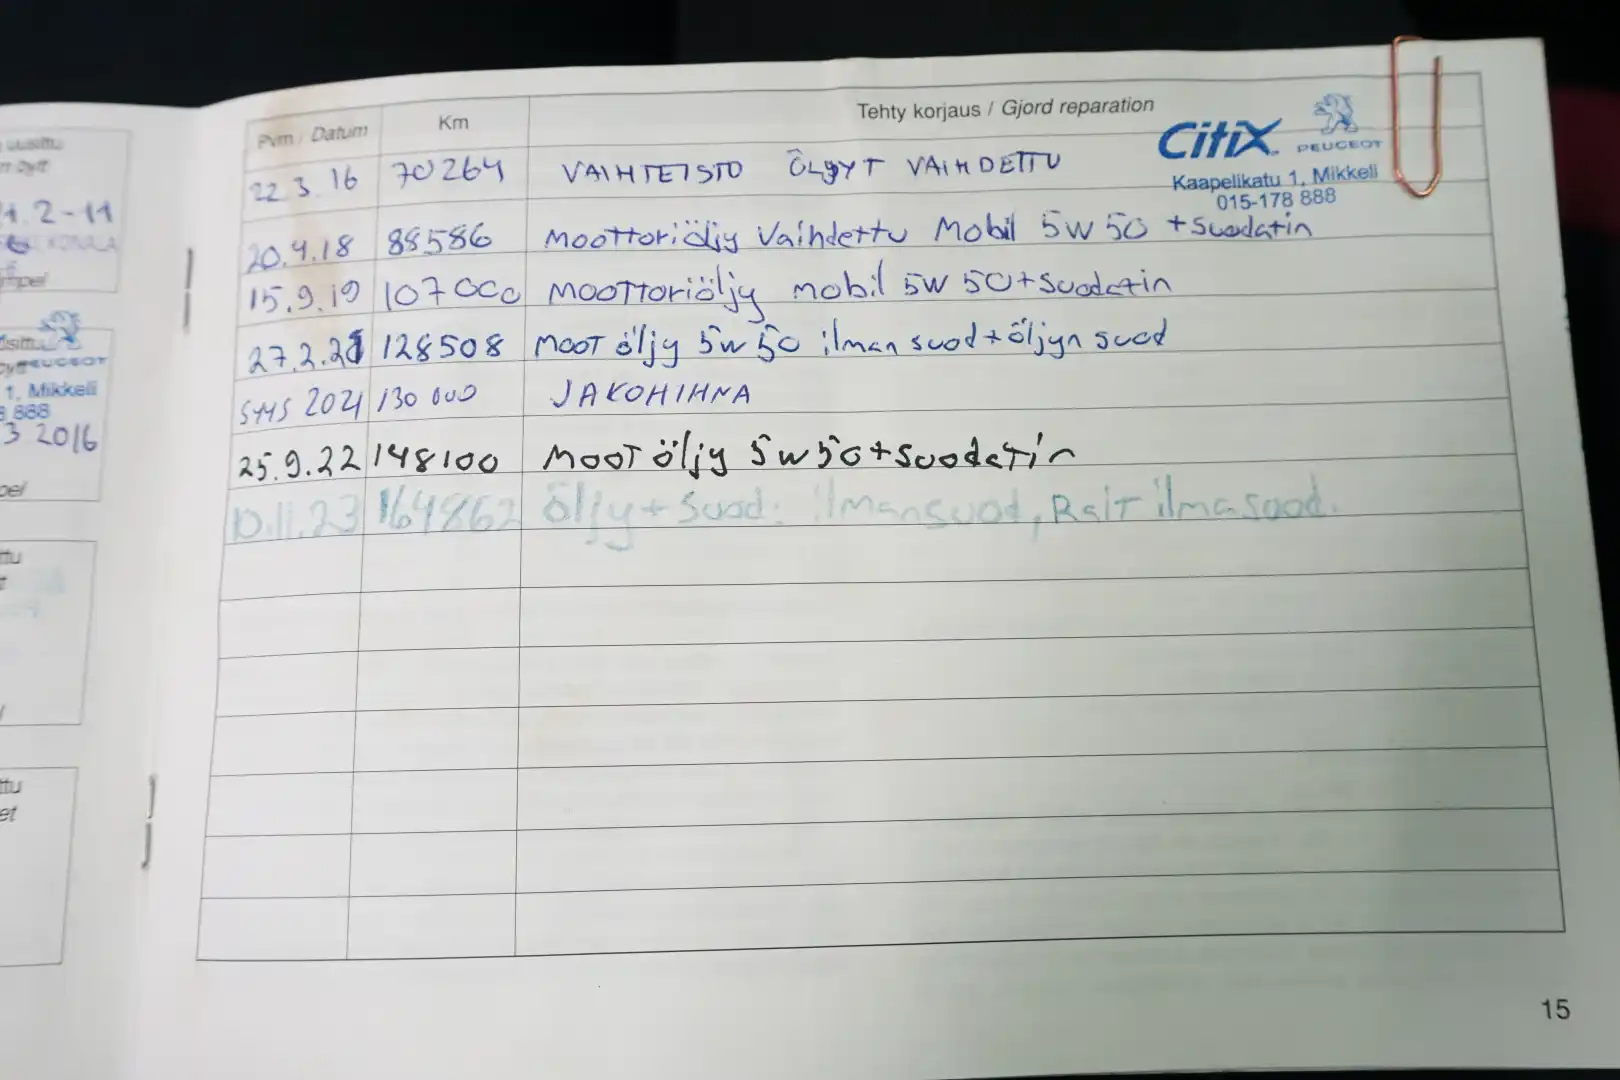 Pvm / Datum Km Tehty korjaus / Gjord reparation
CitiX PEUGEOT
Kaapelikatu 1, Mikkeli
015-178 888
22.3.16 70264 VAIHTEISTO ÖLJYT VAIHDETTU
20.4.18 88586 Moottoriöljy Vaihdettu Mobil 5W 50 + Suodatin
15.9.19 107000 MOOTToriöljy mobil 5W 50+Suodatin
27.2.21 128508 MOOT öljy 5W 50 ilman suod+öljyn suod
SYYS 2021 130 000 JAKOHIHNA
25.9.22 148100 MOOT öljy 5w50+Suodatin
10.11.23 164862 öljy+Suod. ilmansuod, Rait ilmasuod.
15
1.2-11
KONALA
PEUGEOT
1, Mikkeli
888
3 2016